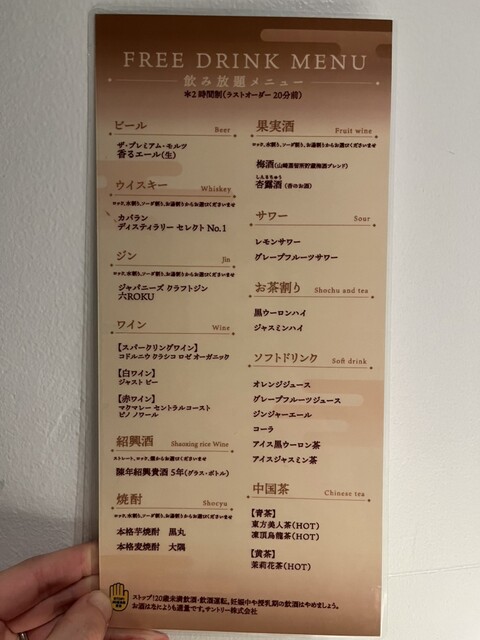 FREE DRINK MENU
飲み放題メニュー
※2時間制(ラストオーダー20分前)
ビール Beer
ザ・プレミアム・モルツ
香るエール(生)
ウイスキー Whiskey
ロック、水割り、ソーダ割り、お湯割りからお選びくださいませ
カバラン
ディスティラリー セレクト No.1
ジン Jin
ロック、水割り、ソーダ割り、お湯割りからお選びくださいませ
ジャパニーズ クラフトジン
六ROKU
ワイン Wine
【スパークリングワイン】
コドルニウ クラシコ ロゼ オーガニック
【白ワイン】
ジャスト ビー
【赤ワイン】
マクマレー セントラルコースト
ピノ ノワール
紹興酒 Shaoxing rice Wine
ストレート、ロック、燗からお選びくださいませ
陳年紹興貴酒 5年(グラス・ボトル)
焼酎 Shocyu
ロック、水割り、ソーダ割り、お湯割りからお選びくださいませ
本格芋焼酎 黒丸
本格麦焼酎 大隅
果実酒 Fruit wine
ロック、水割り、ソーダ割り、お湯割りからお選びくださいませ
梅酒(山崎蒸留所貯蔵梅酒ブレンド)
しんるちゅう
杏露酒(杏のお酒)
サワー Sour
レモンサワー
グレープフルーツサワー
お茶割り Shochu and tea
黒ウーロンハイ
ジャスミンハイ
ソフトドリンク Soft drink
オレンジジュース
グレープフルーツジュース
ジンジャーエール
コーラ
アイス黒ウーロン茶
アイスジャスミン茶
中国茶 Chinese tea
【青茶】
東方美人茶(HOT)
凍頂烏龍茶(HOT)
【黄茶】
茉莉花茶(HOT)
ストップ!20歳未満飲酒・飲酒運転。妊娠中や授乳期の飲酒はやめましょう。
お酒はなによりも適量です。サントリー株式会社